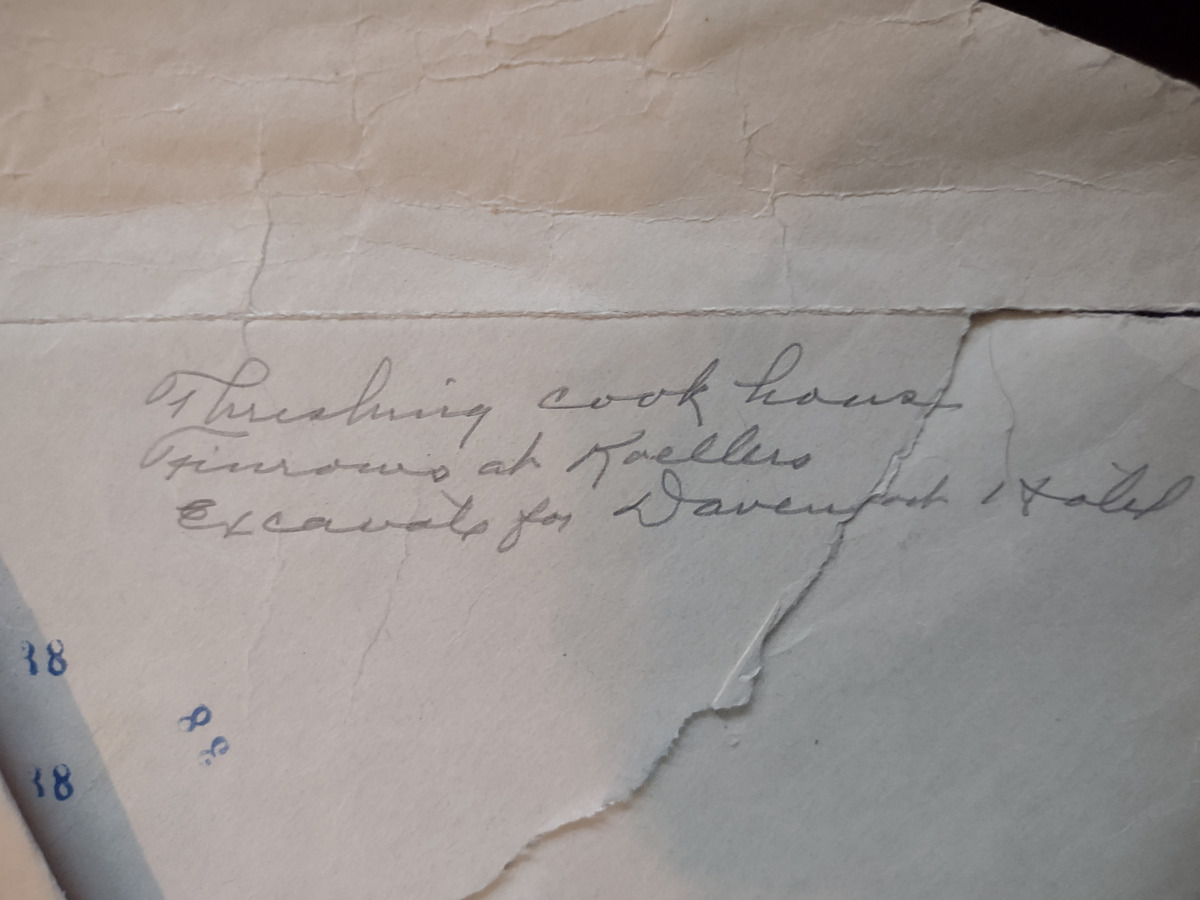 Threshing cook house
at Koellers
Excavate for Davenport Hotel
18
8
8
18